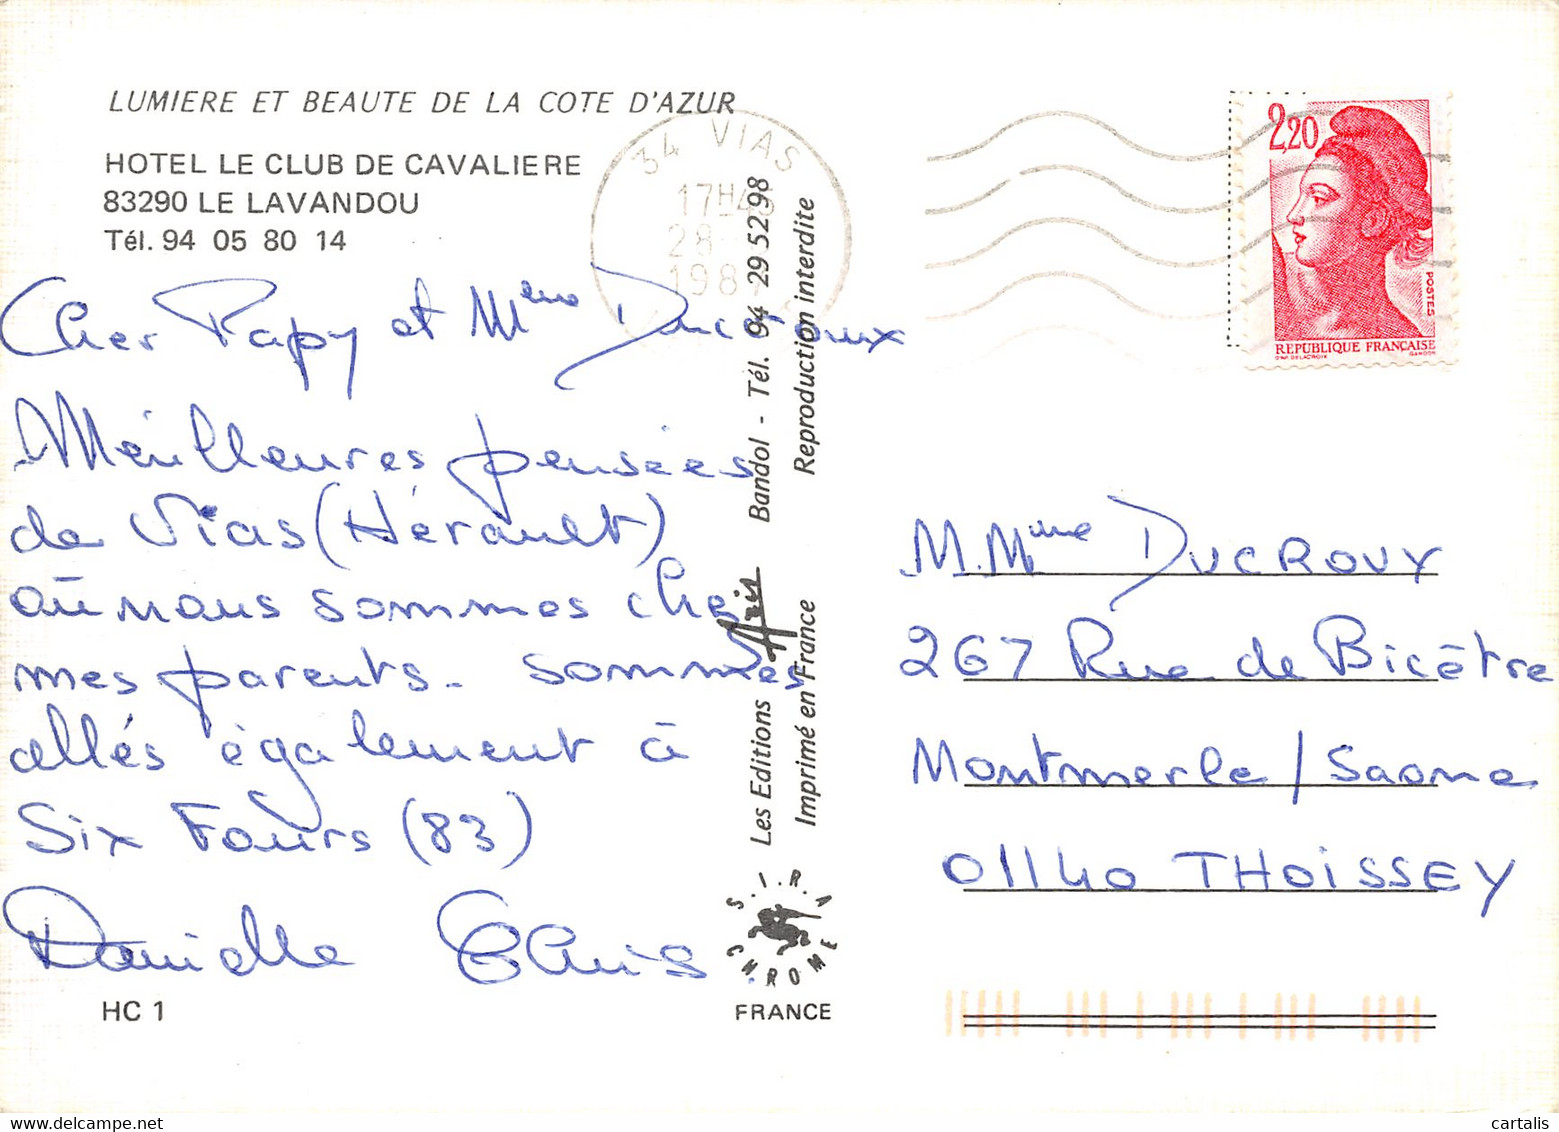 LUMIERE ET BEAUTE DE LA COTE D'AZUR
HOTEL LE CLUB DE CAVALIERE
83290 LE LAVANDOU
Tél. 94 05 80 14
34 VIAS
17H45
28
198
2,20
POSTES
REPUBLIQUE FRANÇAISE
D'AP. DELACROIX GANDON
Cher Papy et Mme
Meilleures pensées
de Vias (Hérault)
où nous sommes che
mes parents. sommes
allés également à
Six Fours (83)
Danielle
HC 1
Les Editions Aris Bandol - Tél. 94 29 52 98
Imprimé en France Reproduction interdite
S.I.R.A
CHROME
FRANCE
M. Mme DUCROUY
267 Rue de Bicêtre
Montmerle / Saone
01140 THOISSEY
cartalis